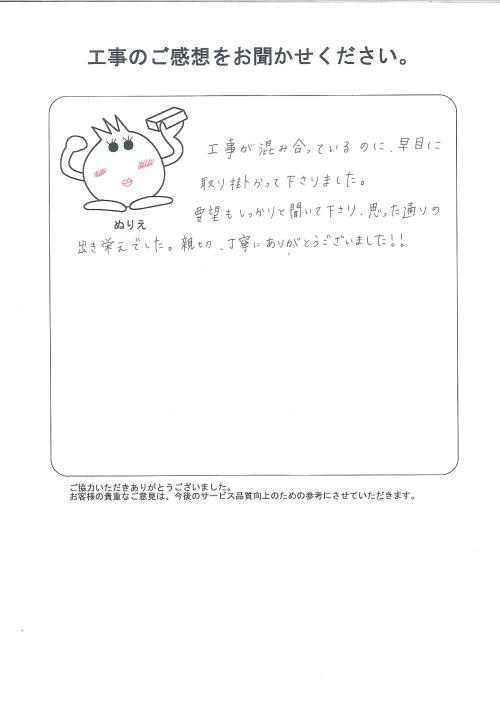 工事のご感想をお聞かせください。
工事が混み合っているのに、早目に
取り掛かって下さりました。
要望もしっかりと聞いて下さり、思った通りの
ぬりえ
出き栄えでした。親切、丁寧にありがとうございました!!
ご協力いただきありがとうございました。
お客様の貴重なご意見は、今後のサービス品質向上のための参考にさせていただきます。